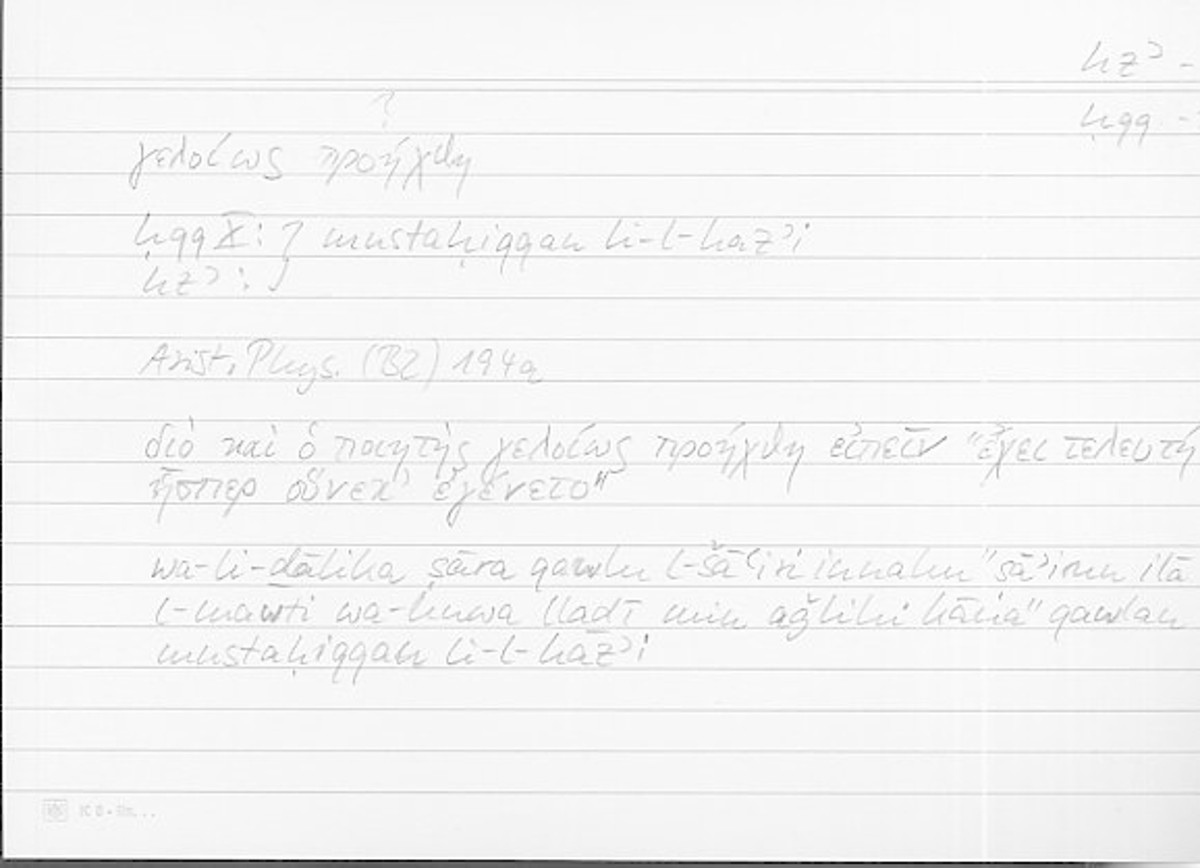 hzʾ -
ḥqq -
?
γελοίως προήχθη
ḥqq X: } mustaḥiqqan li-l-hazʾi
hzʾ: }
Arist. Phys. (B2) 194a
διὸ καὶ ὁ ποιητὴς γελοίως προήχθη εἰπεῖν "ἔχει τελευτὴ
ἧσπερ οὕνεκ' ἐγένετο"
wa-li-ḏālika ṣāra qawlu l-šāʿiri innahu "ṣāʾirun ilā
l-mawti wa-huwa llaḏī min aǧlihi kāna" qawlan
mustaḥiqqan li-l-hazʾi